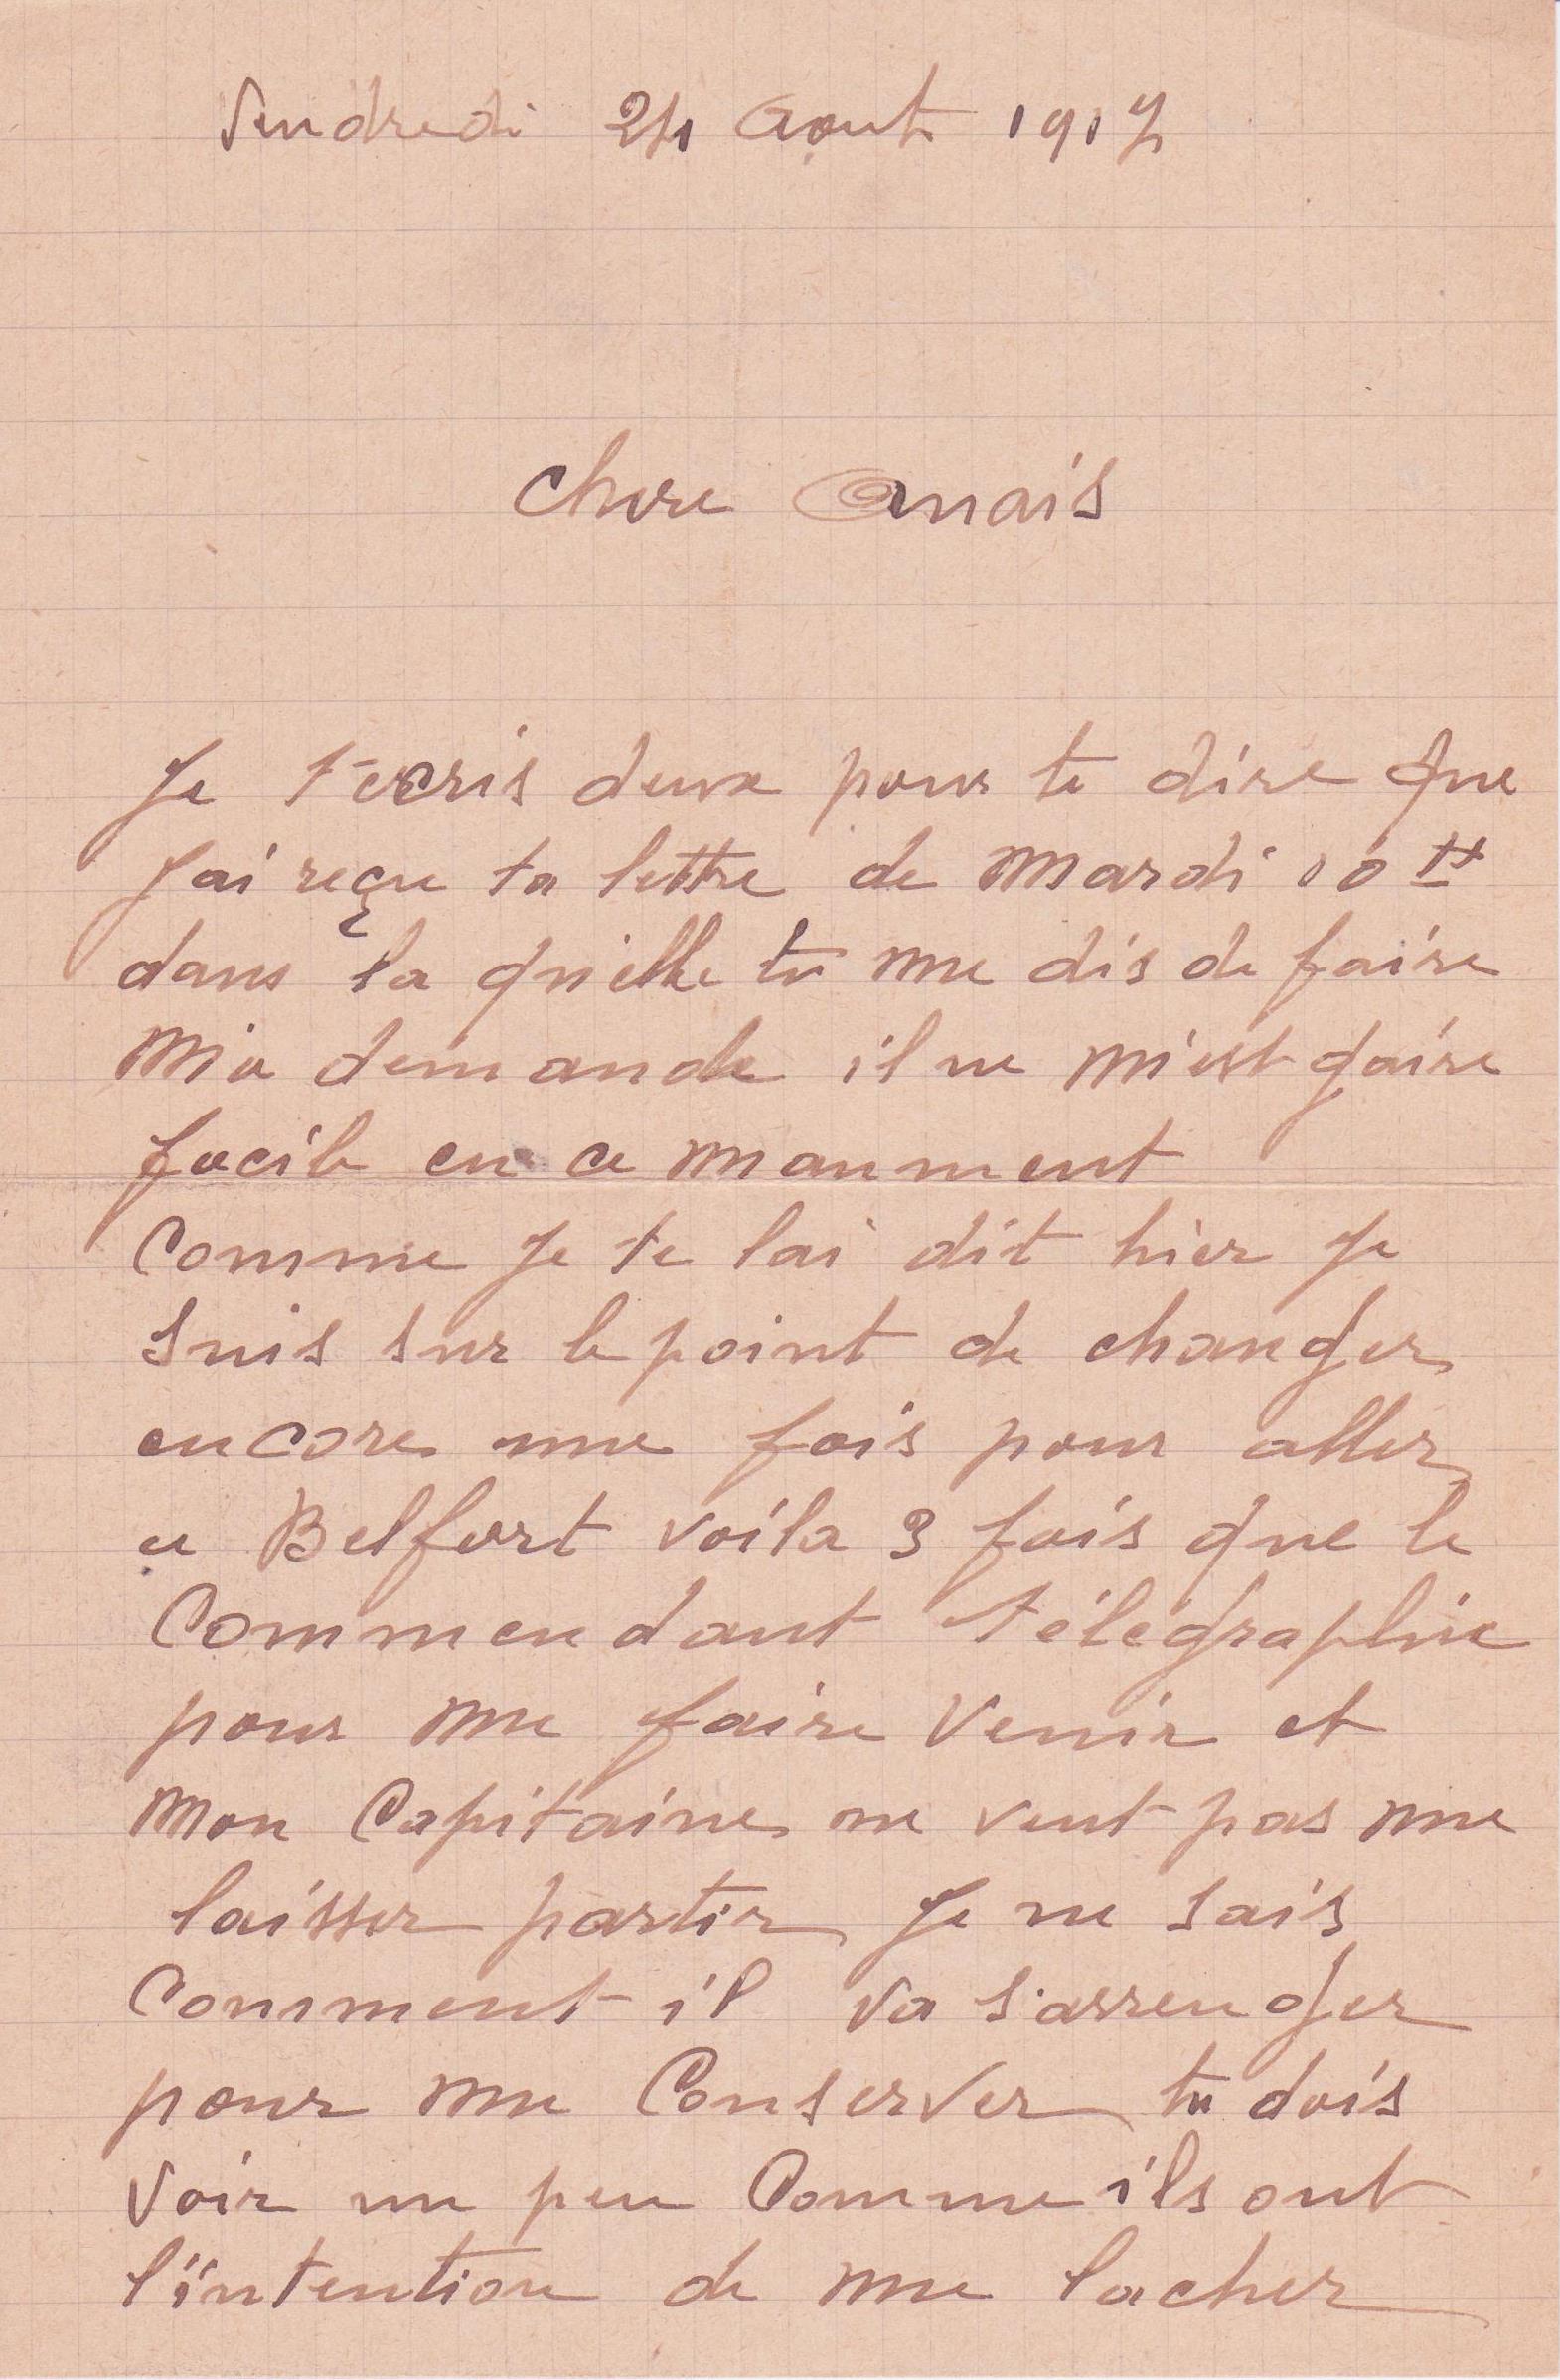 Vendredi 24 Aout 1917
Chere Anais
Je t'ecris deux pour te dire que
J'ai reçue ta lettre de Mardi
dans la qu'elle tu me dis de faire
Ma demande il ne m'est gaire
facile en ce manment
Comme Je te lai dit hier Je
suis sur le point de changer
encore une fois pour aller
a Belfort voila 3 fois que le
Commendant télégraphie
pour me faire venir et
Mon Capitaine ne veut pas me
laisser partir Je ne sais
Comment il va s'arrenger
pour me Conserver tu dois
Voir un peu Comme ils ont
l'intention de me lacher